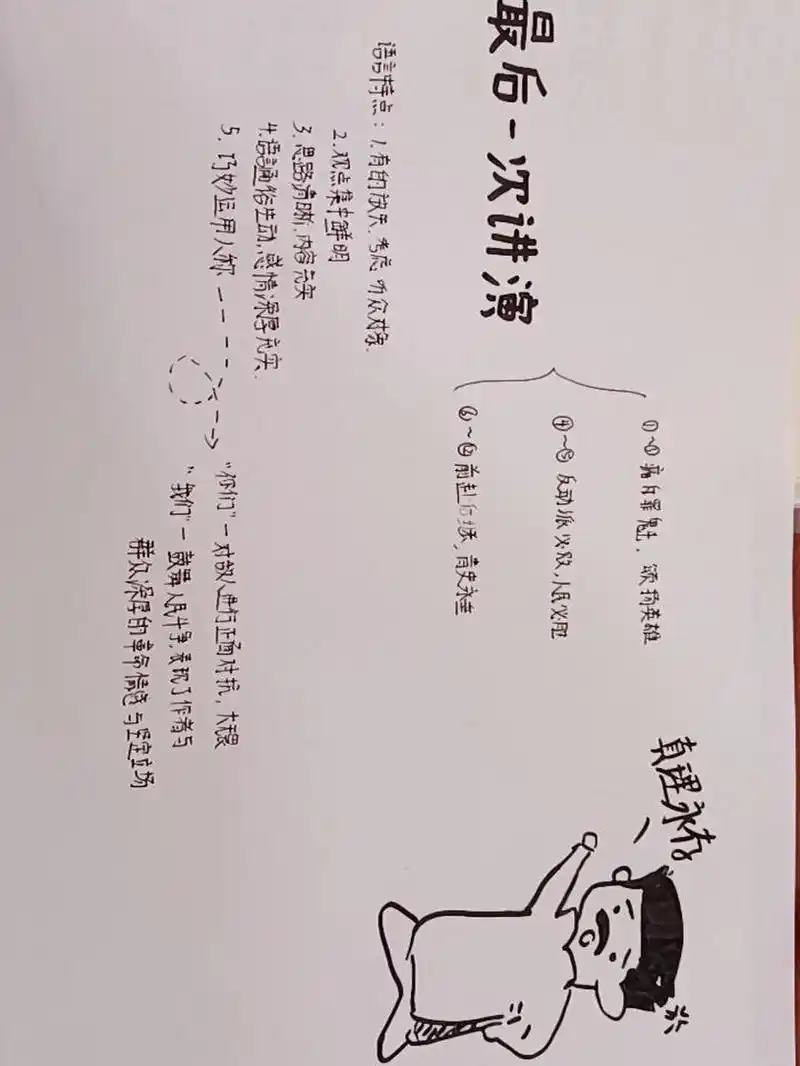 最后一次讲演
①~③痛斥罪魁,颂扬英雄
④~⑤反动派必败,人民必胜
⑥~⑫前赴后继,青史永垂
语言特点:1.有的放矢.考虑听众对象.
2.观点集中鲜明
3.思路清晰,内容充实
4.语言通俗生动,感情深厚充实.
5.巧妙运用人称
"你们"-对敌人进行正面对抗,大快
"我们"-鼓舞人民斗争,表现了作者与
群众深厚的革命情感与坚定立场
真理永存